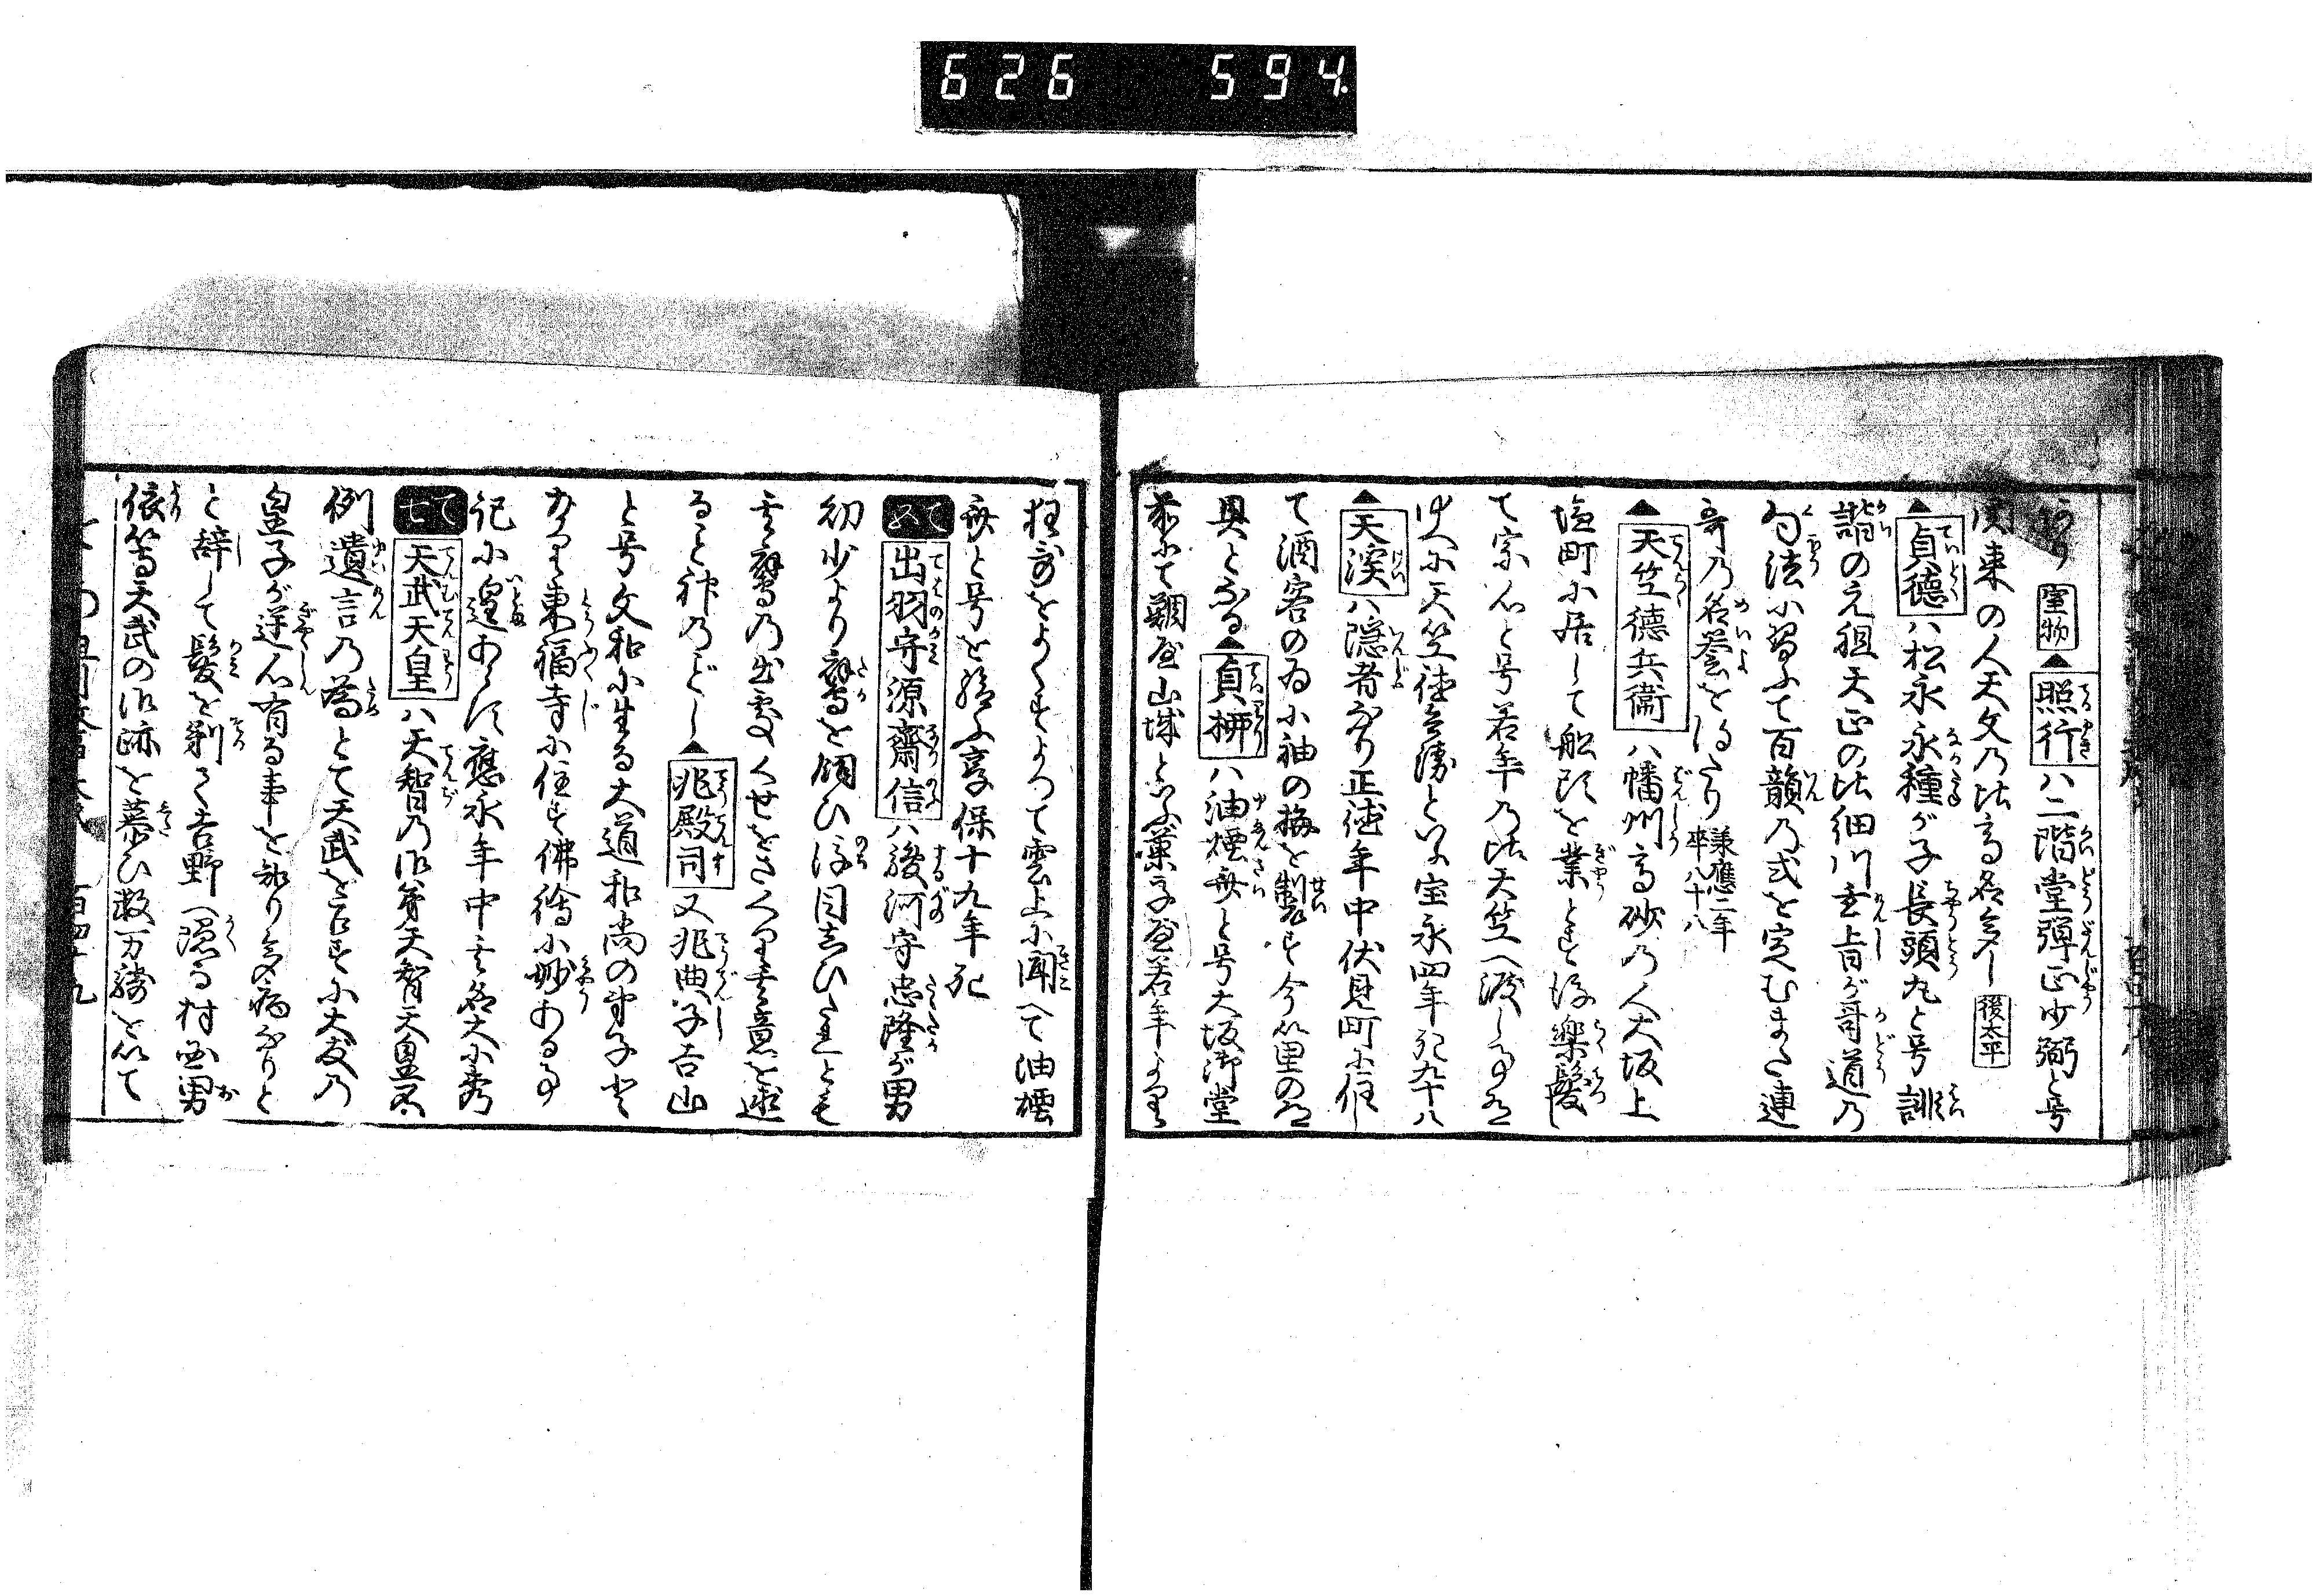 626 594
あり 窪物 ▲照行ハ二階堂弾正少弼と号
関東の人天文乃比高名多し 後太平
▲貞德ハ松永永種が子長頭丸と号誹
諧の元祖天正の比細川玄旨が哥道乃
句法小習ふて百韻乃式を定むまた連
哥乃名誉を得たり 承應二年卒八十八
▲天竺德兵衞ハ幡州高砂乃人大坂上
塩町小居して舩頭を業とす後樂髪し
て宗心と号若年乃比天竺へ渡し
小天竺徳兵衛といふ宝永四年死九十八
▲天渓ハ隱者なり正徳年中伏見町小住し
て酒客のゐ小袖の梅を製す今箇里の
具となる▲貞栁ハ油煙斎と号大坂御堂
前小て鯛屋山城といふ菓子屋若年より
狂哥をよくすよつて雲上小聞へて油煙
斎と号を給ふ享保十九年死
て五 出羽守源齋信ハ駿河守忠隆が男
幼少より鷹を飼ひ後目しひたれとも
其鷹乃出處くせをさくり其意を述
ると神乃ごとし▲兆殿司又兆典子吉山
と号文和小生る大道和尚の弟子
なり東福寺小住す佛繪小妙ある事
記小遑あらす應永年中其名大小秀
て七 天武天皇ハ天智乃御弟天智天皇不
例遺言乃為とて天武を召す小大友乃
皇子が逆心有る事を知り多病なりと
辞して髪を剃て吉野へ隠る村国男
依等天武の御跡を慕ひ数万騎を以て
百四十九